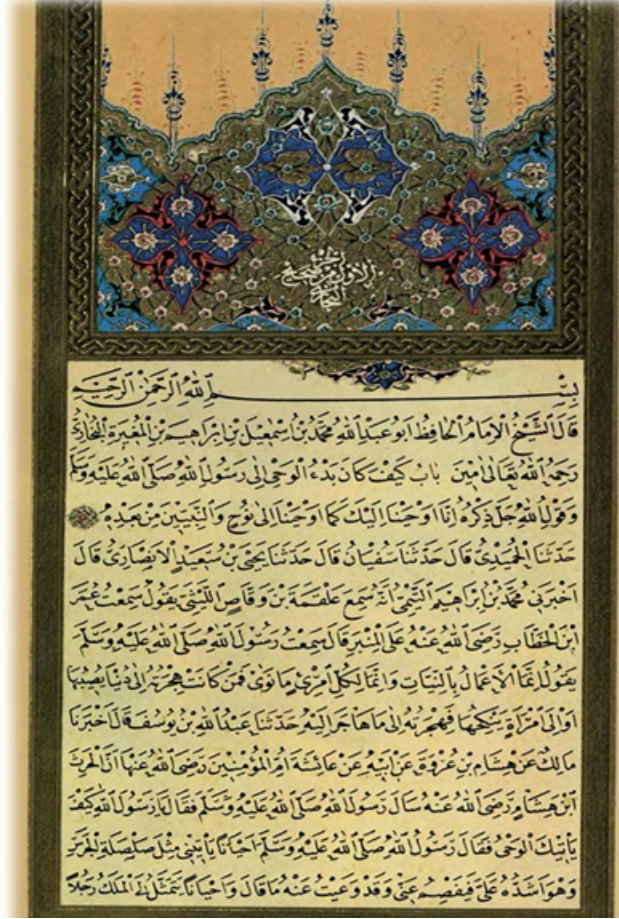 الجزء الأول من صحيح
البخاري
بِسْمِ اللهِ الرَّحْمٰنِ الرَّحِيمِ
قَالَ الشَّيْخُ الْإِمَامُ الْحَافِظُ أَبُو عَبْدِ اللهِ مُحَمَّدُ بْنُ إِسْمٰعِيلَ بْنِ إِبْرَاهِيمَ بْنِ الْمُغِيرَةِ الْبُخَارِيُّ
رَحِمَهُ اللهُ تَعَالَى اٰمِينَ بَابُ كَيْفَ كَانَ بَدْءُ الْوَحْيِ إِلَى رَسُولِ اللهِ صَلَّى اللهُ عَلَيْهِ وَسَلَّمَ
وَقَوْلُ اللهِ جَلَّ ذِكْرُهُ إِنَّا أَوْحَيْنَا إِلَيْكَ كَمَا أَوْحَيْنَا إِلَى نُوحٍ وَالنَّبِيِّينَ مِنْ بَعْدِهِ
حَدَّثَنَا الْحُمَيْدِيُّ قَالَ حَدَّثَنَا سُفْيَانُ قَالَ حَدَّثَنَا يَحْيَى بْنُ سَعِيدٍ الْأَنْصَارِيُّ قَالَ
أَخْبَرَنِي مُحَمَّدُ بْنُ إِبْرَاهِيمَ التَّيْمِيُّ أَنَّهُ سَمِعَ عَلْقَمَةَ بْنَ وَقَّاصٍ اللَّيْثِيَّ يَقُولُ سَمِعْتُ عُمَرَ
ابْنَ الْخَطَّابِ رَضِيَ اللهُ عَنْهُ عَلَى الْمِنْبَرِ قَالَ سَمِعْتُ رَسُولَ اللهِ صَلَّى اللهُ عَلَيْهِ وَسَلَّمَ
يَقُولُ إِنَّمَا الْأَعْمَالُ بِالنِّيَّاتِ وَإِنَّمَا لِكُلِّ امْرِئٍ مَا نَوَى فَمَنْ كَانَتْ هِجْرَتُهُ إِلَى دُنْيَا يُصِيبُهَا
أَوْ إِلَى امْرَأَةٍ يَنْكِحُهَا فَهِجْرَتُهُ إِلَى مَا هَاجَرَ إِلَيْهِ حَدَّثَنَا عَبْدُ اللهِ بْنُ يُوسُفَ قَالَ أَخْبَرَنَا
مَالِكٌ عَنْ هِشَامِ بْنِ عُرْوَةَ عَنْ أَبِيهِ عَنْ عَائِشَةَ أُمِّ الْمُؤْمِنِينَ رَضِيَ اللهُ عَنْهَا أَنَّ الْحٰرِثَ
ابْنَ هِشَامٍ رَضِيَ اللهُ عَنْهُ سَأَلَ رَسُولَ اللهِ صَلَّى اللهُ عَلَيْهِ وَسَلَّمَ فَقَالَ يَا رَسُولَ اللهِ كَيْفَ
يَأْتِيكَ الْوَحْيُ فَقَالَ رَسُولُ اللهِ صَلَّى اللهُ عَلَيْهِ وَسَلَّمَ أَحْيَانًا يَأْتِينِي مِثْلَ صَلْصَلَةِ الْجَرَسِ
وَهُوَ أَشَدُّهُ عَلَيَّ فَيَفْصِمُ عَنِّي وَقَدْ وَعَيْتُ عَنْهُ مَا قَالَ وَأَحْيَانًا يَتَمَثَّلُ لِيَ الْمَلَكُ رَجُلًا